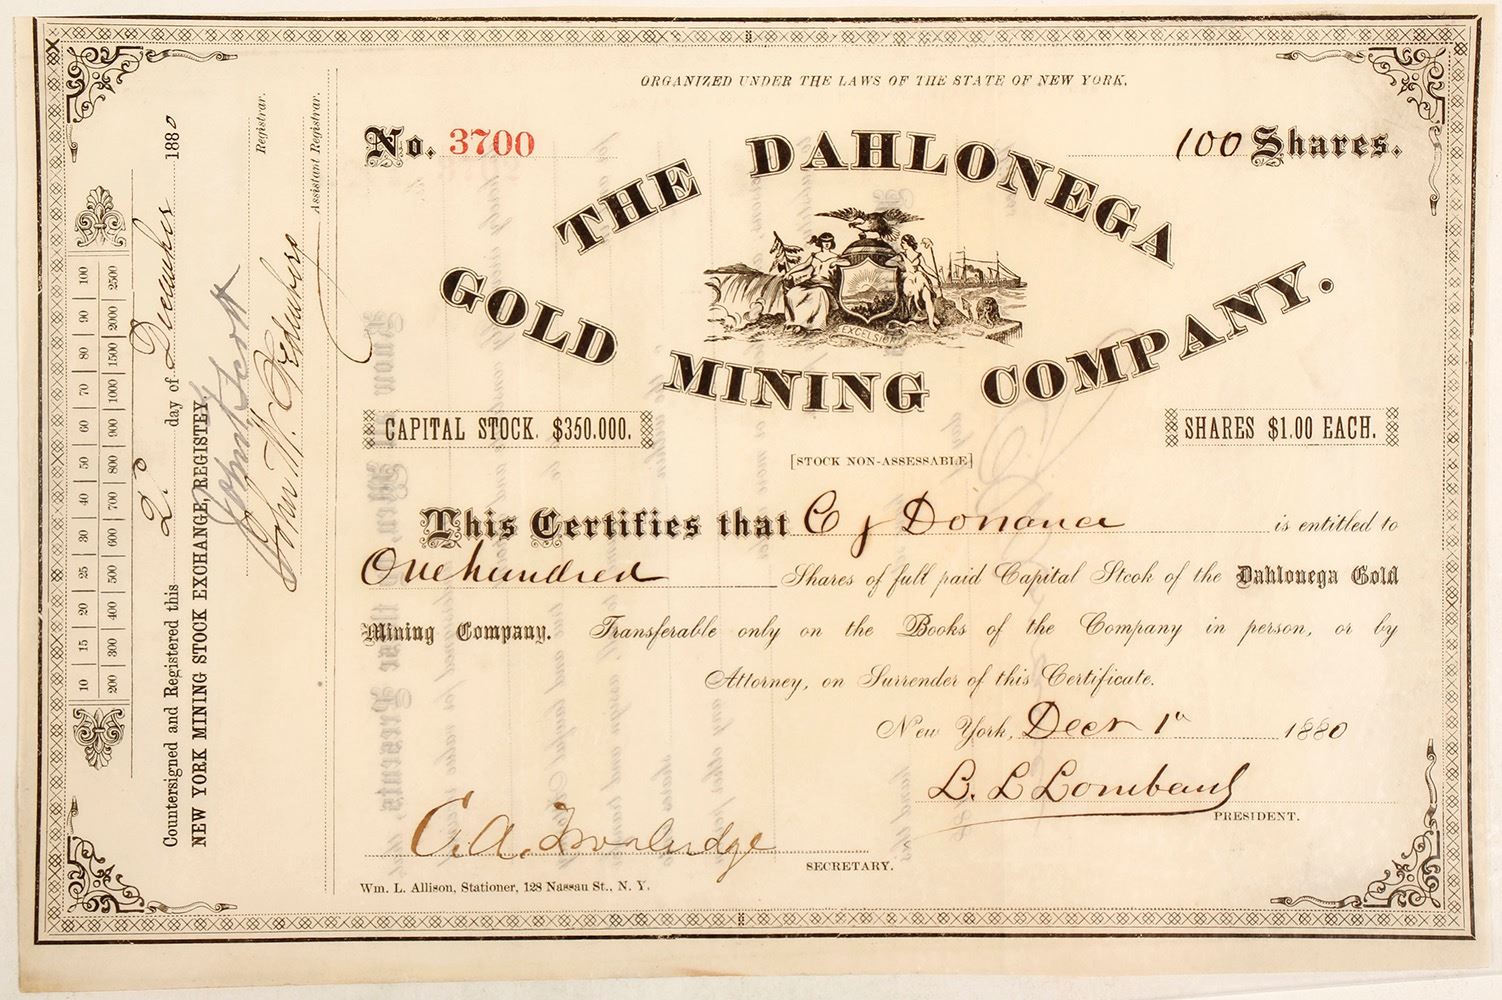 ORGANIZED UNDER THE LAWS OF THE STATE OF NEW YORK.
No. 3700
100 Shares.
THE DAHLONEGA
GOLD MINING COMPANY.
EXCELSIOR
CAPITAL STOCK. $350.000.
SHARES $1.00 EACH.
[STOCK NON-ASSESSABLE]
This Certifies that C J Donance is entitled to
One hundred Shares of full paid Capital Stcok of the Dahlonega Gold
Mining Company. Transferable only on the Books of the Company in person, or by
Attorney, on Surrender of this Certificate.
New York, Decr 1st 1880
L. L. Lombard
PRESIDENT.
C. A.
SECRETARY.
Wm. L. Allison, Stationer, 128 Nassau St., N. Y.
10 15 20 25 30 40 50 60 70 80 90 100
200 300 400 500 600 700 800 900 1000 1500 2000 2500
Countersigned and Registered this 2d day of December 1880
NEW YORK MINING STOCK EXCHANGE, REGISTEY.
Registrar.
John W.
Assistant Registrar.